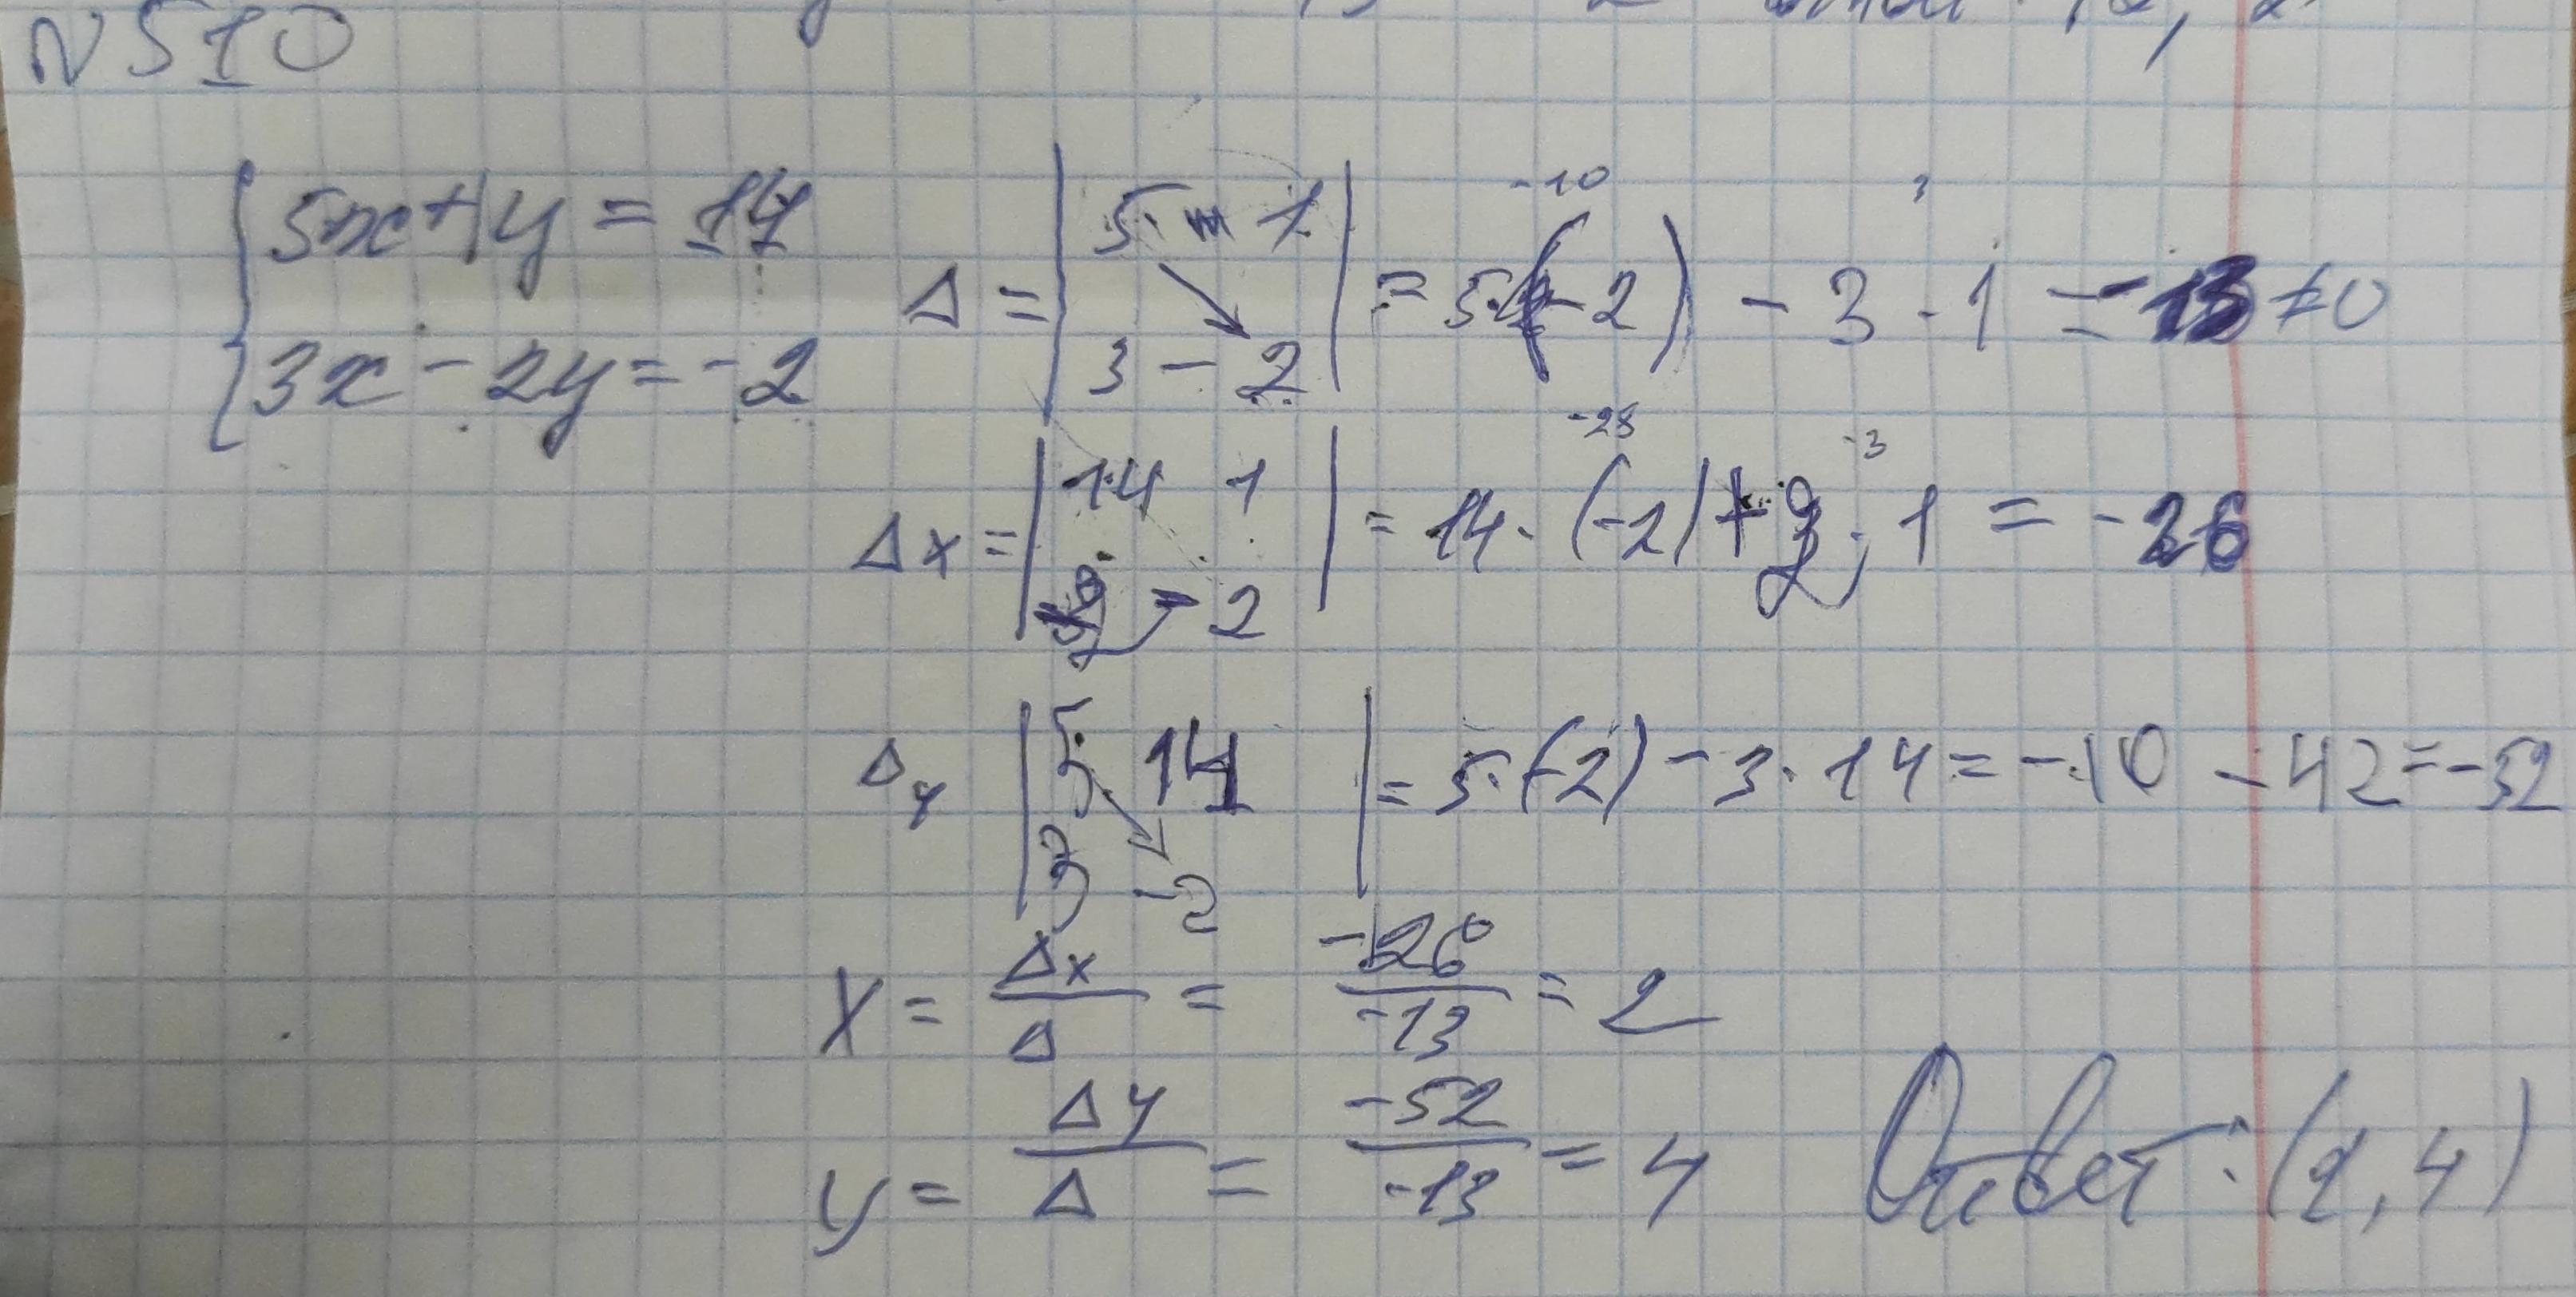 N 510
{ 5x+1y = 14
{ 3x - 2y = -2
Δ = | 5 1 ; 3 -2 | = 5·(-2) - 3·1 = -13 ≠ 0
-10 3
Δx = | 14 1 ; -2 -2 | = 14·(-2) + 2·1 = -26
-28 -3
Δy | 5 14 ; 3 -2 | = 5·(-2) - 3·14 = -10 - 42 = -52
x = Δx / Δ = -26 / -13 = 2
y = Δy / Δ = -52 / -13 = 4 Ответ: (2, 4)